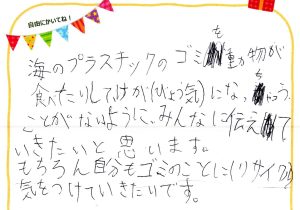 自由にかいてね!
海のプラスチックのゴミを動物が
食べたりしてけが(びょう気)になっちゃう
ことがないように、みんなに伝えて
いきたいと思います。
もちろん自分もゴミのことに(リサイクル)
気をつけていきたいです。